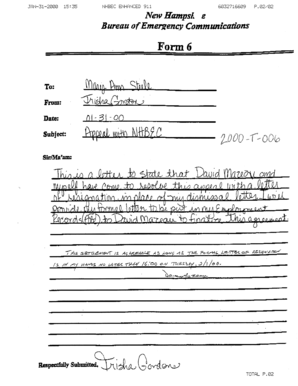 JAN-31-2000 15:35 NHBEC ENHANCED 911 6032716609 P.02/02
New Hampsh e
Bureau of Emergency Communications
Form 6
To: Mary Ann Steele
From: Trisha Gordon
Date: 01-31-00
Subject: Appeal with NHBEC
2000-T-006
Sir/Ma'am:
This is a letter to state that David Mazeau and
myself have come to resolve this appeal with a letter
of resignation in place of my dismissal letter. I will
provide the formal letter to be put in my Employment
Records to David Mazeau to finalize this agreement
This settlement is agreeable as long as the formal letter of resignation
is in my hands no later than 16:00 on Tuesday, 2/1/00.
Respectfully Submitted, Trisha Gordon
TOTAL P.02